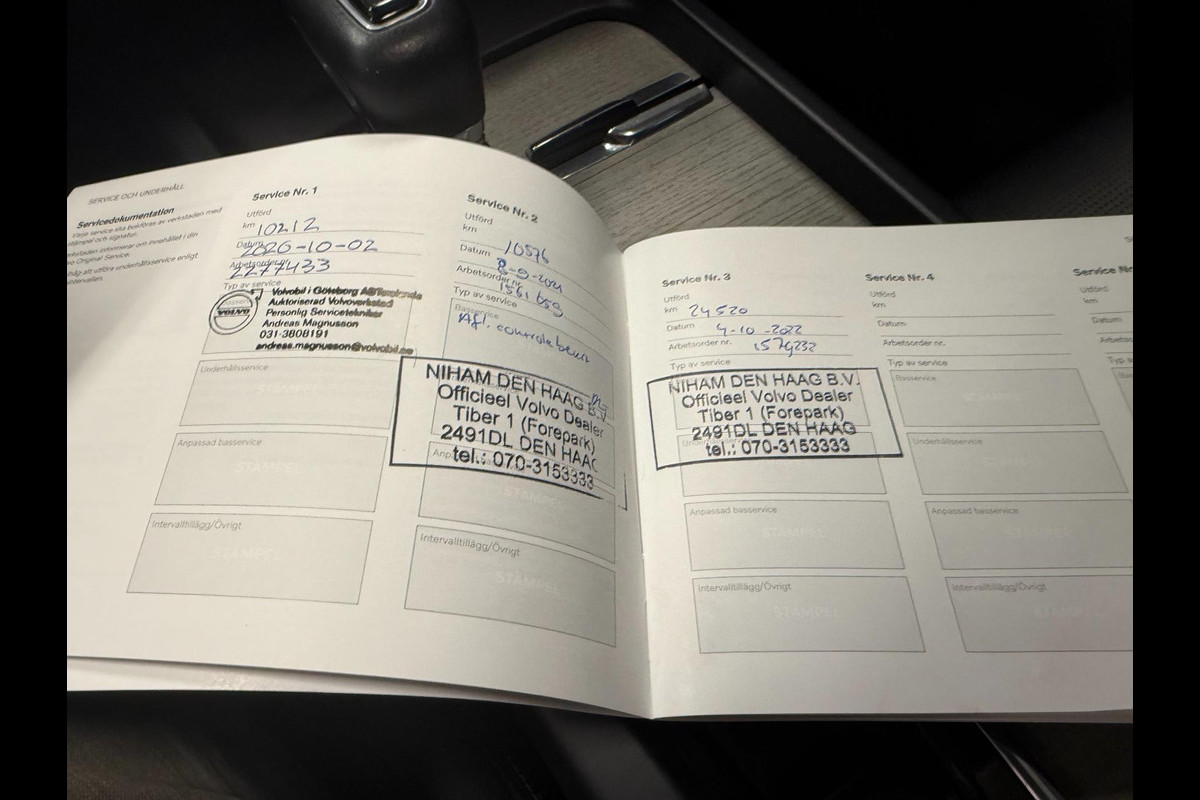 SERVICE OCH UNDERHÅLL
Servicedokumentation
Varje service ska bekräftas av verkstaden med
stämpel och signatur.
Service Nr. 1
Utförd
km 10212
Datum 2020-10-02
Arbetsorder nr. 2277433
Typ av service
VOLVO
Volvobil i Göteborg AB
Auktoriserad Volvoverkstad
Personlig Servicetekniker
Andreas Magnusson
031-3808191
andreas.magnusson@volvobil.se
Underhållsservice
STÄMPEL
Anpassad basservice
STÄMPEL
Intervalltillägg/Övrigt
STÄMPEL
Service Nr. 2
Utförd
km 10576
Datum 8-9-2021
Arbetsorder nr. 1561659
Typ av service
Basservice
Afl. controle beurt
NIHAM DEN HAAG B.V.
Officieel Volvo Dealer
Tiber 1 (Forepark)
2491DL DEN HAAG
tel.: 070-3153333
STÄMPEL
Intervalltillägg/Övrigt
STÄMPEL
Service Nr. 3
Utförd
km 24520
Datum 4-10-2022
Arbetsorder nr. 1579232
Typ av service
NIHAM DEN HAAG B.V.
Officieel Volvo Dealer
Tiber 1 (Forepark)
2491DL DEN HAAG
tel.: 070-3153333
Anpassad basservice
STÄMPEL
Intervalltillägg/Övrigt
STÄMPEL
Service Nr. 4
Utförd
km
Datum
Arbetsorder nr.
Typ av service
Basservice
STÄMPEL
Underhållsservice
Anpassad basservice
STÄMPEL
Intervalltillägg/Övrigt
STÄMPEL
Service Nr
Utförd
km
Datum